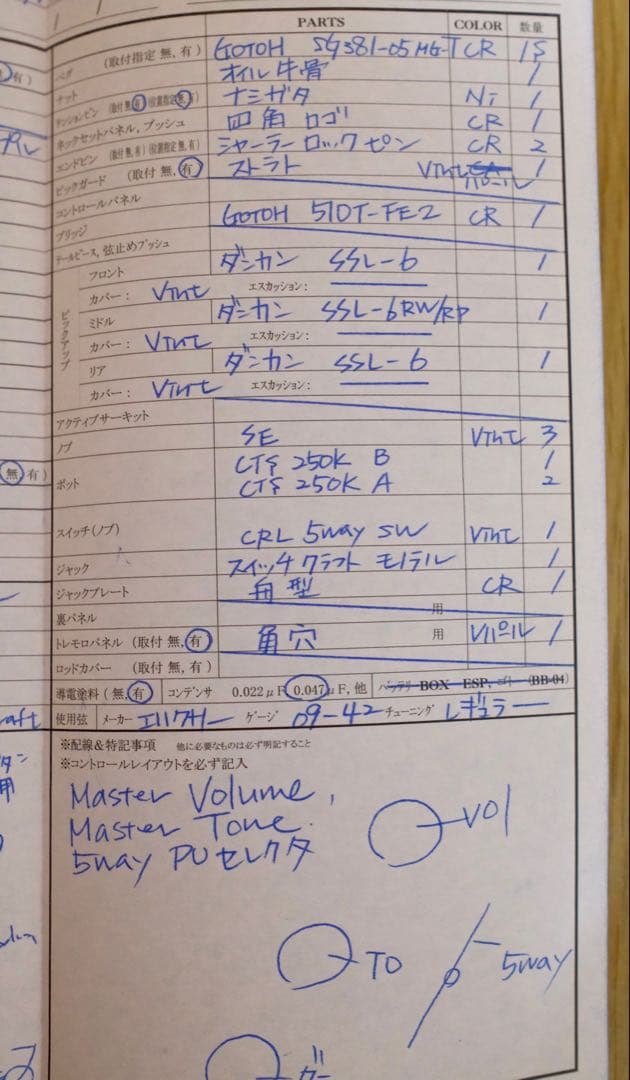 PARTS COLOR 数量
ペグ (取付指定 無, 有) GOTOH SG381-05 MG-T CR 1S
ナット オイル牛骨 1
テンションピン (取付 無, 有) (位置指定 無, 有) ナミザタ Ni 1
ネックセットパネル, ブッシュ 四角 ロゴ CR 1
エンドピン (取付 無, 有) (位置指定 無, 有) シャーラー ロックピン CR 2
ピックガード (取付 無, 有) ストラト VTNT パール 1
コントロールパネル
ブリッジ GOTOH 510T-FE2 CR 1
テールピース, 弦止めブッシュ
ピックアップ
フロント ダンカン SSL-6 1
カバー: VTNT エスカッション:
ミドル ダンカン SSL-6 RW/RP 1
カバー: VTNT エスカッション:
リア ダンカン SSL-6 1
カバー: VTNT エスカッション:
アクティブサーキット
ノブ SE VTNT 3
ポット CTS 250K B 1
CTS 250K A 2
スイッチ(ノブ) CRL 5way SW VTNT 1
ジャック スイッチクラフト モノラル 1
ジャックプレート 舟型 CR 1
裏パネル 用
トレモロパネル (取付 無, 有) 角穴 用 1
ロッドカバー (取付 無, 有)
導電塗料 (無, 有) コンデンサ 0.022μF, 0.047μF, 他 バッテリーBOX ESP, (BB-04)
使用弦 メーカー ゲージ 09-42 チューニング レギュラー
※配線&特記事項 他に必要なものは必ず明記すること
※コントロールレイアウトを必ず記入
Master Volume,
Master Tone.
5way PUセレクタ
VOl
TO
5way